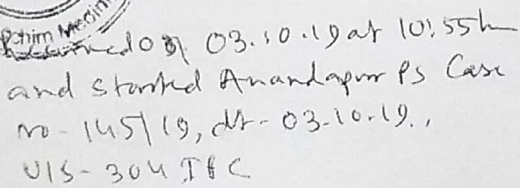 Pashim Medini
Received on 03.10.19 at 10:55 h
and started Anandapur PS Case
no - 145/19, dt - 03.10.19.,
U/S - 304 IPC